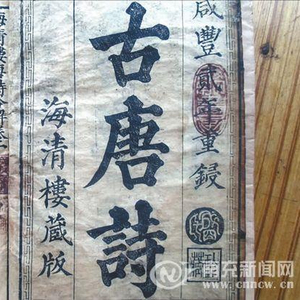 咸豐貳年重鋟
古唐詩
海清樓藏版
南充新闻网
www.cnncw.cn